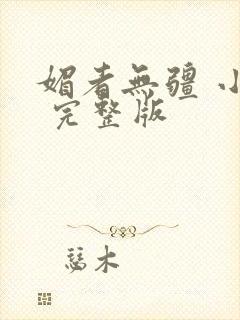 媚者無疆 小
完整版
慈木